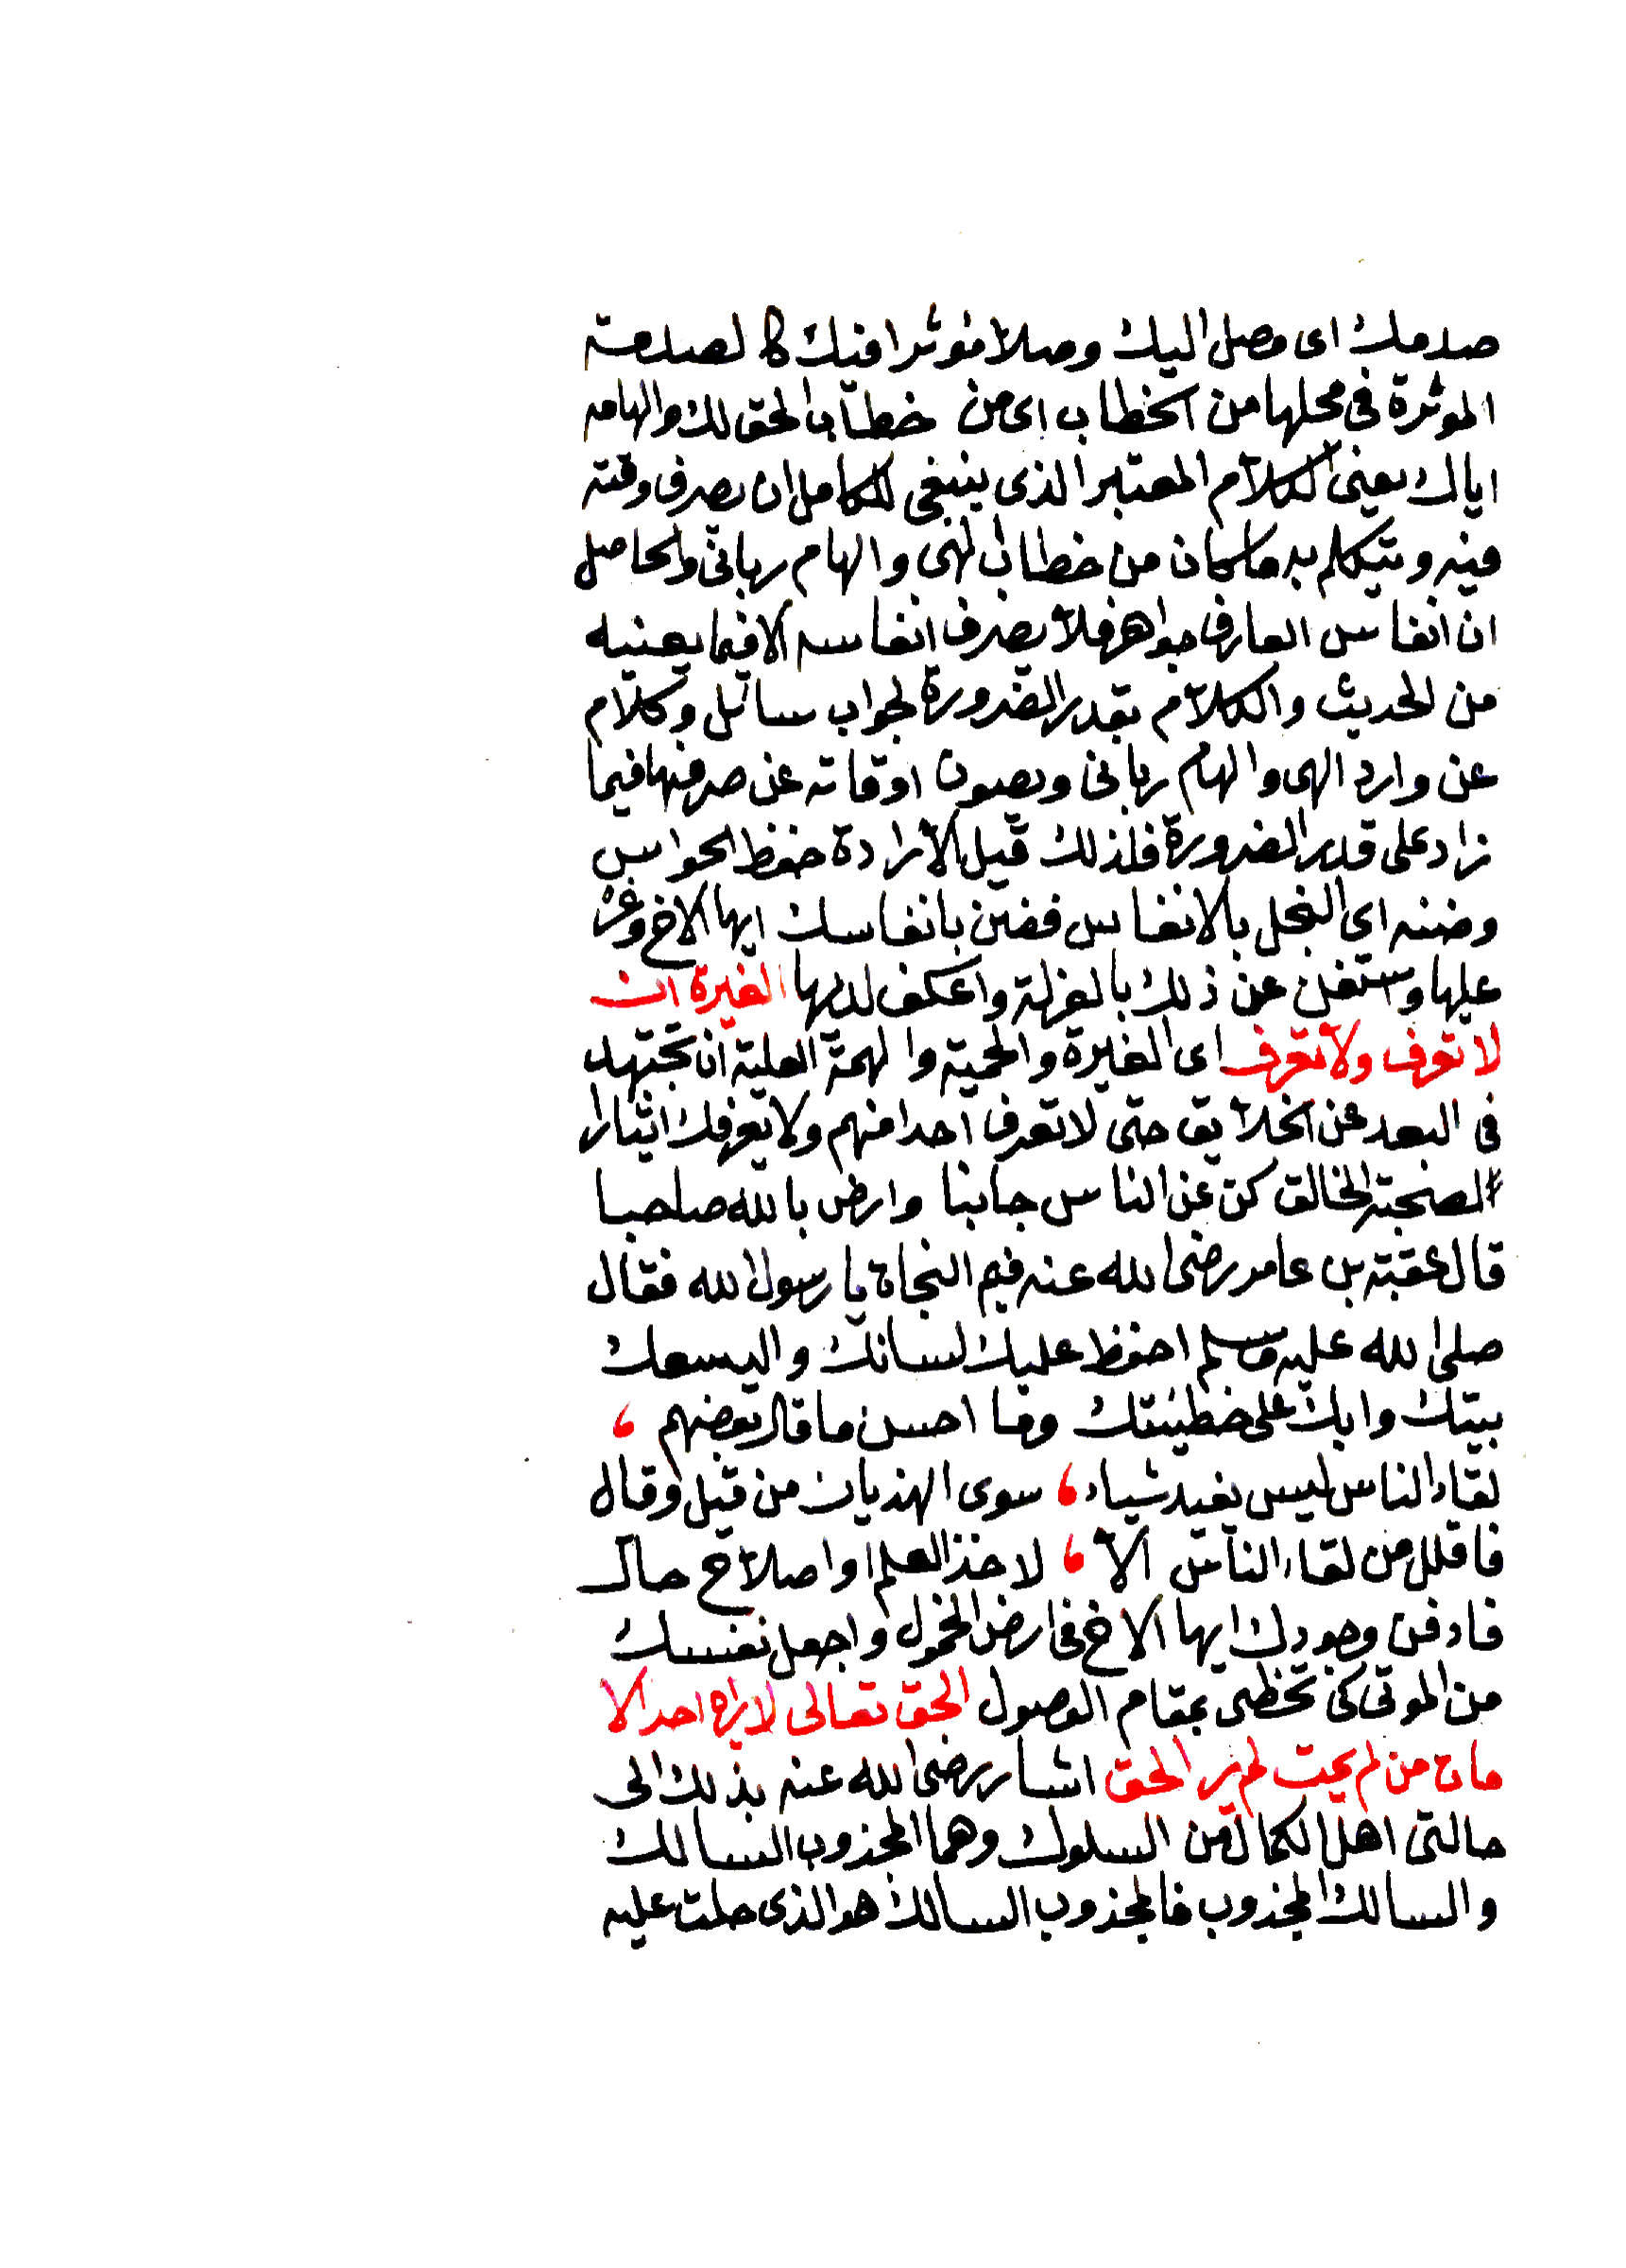 صدمك اى وصل اليك وصلا موثرا فيك كالصدمة
الموثرة فى محلها من الخطاب اى من خطاب الحق لك والهامه
اياك يعنى الكلام المعتبر الذى ينبغى للكامل ان يصرف وقته
فيه ويتكلم به ما كان من خطاب الهى والهام ربانى والحاصل
ان انفاس العارف جواهر فلا يصرف انفاسه الا فيما يعنيه
من الحديث والكلام بقدر الضرورة لجواب سائل وكلام
عن وارد الهى والهام ربانى ويصون اوقاته عن صرفها فيما
زاد على قدر الضرورة فلذلك قيل الارادة حفظ الحواس
وضنه اى البخل بالانفاس فضن بانفاسك ايها الاخ وغر
عليها واستغن عن ذلك بالعزلة واعكف لديها الغيرة ان
لا تعرف ولا تعرف اى الغيرة والحمية والهمة العلية ان تجتهد
فى البعد عن الخلايق حتى لا تعرف احدا منهم ولا يعرفك ايثارا
لصحبة الخالق كن عن الناس جابنا وارض بالله صاحبا
قال عقبة بن عامر رضى الله عنه فيم النجاة يا رسول الله فقال
صلى الله عليه وسلم احفظ عليك لسانك واليسعك
بيتك وابك على خطيئتك وما احسن ما قال بعضهم ،
لقاء الناس ليس يفيد شياء ، سوى الهذيان من قيل وقال
فاقلل من لقاء الناس الا ، لاخذ العلم او اصلاح حال
فادفن وجودك ايها الاخ فى ارض الخمول واجعل نفسك
من الموتى كى تحظى بمقام الوصول الحق تعالى لا يراه احد الا
مات من لم يمت لم ير الحق اشار رضى الله عنه بذلك الى
حالتى اهل الكمال من السلوك وهما المجذوب السالك
والسالك المجذوب فالمجذوب السالك هو الذى حلت عليه